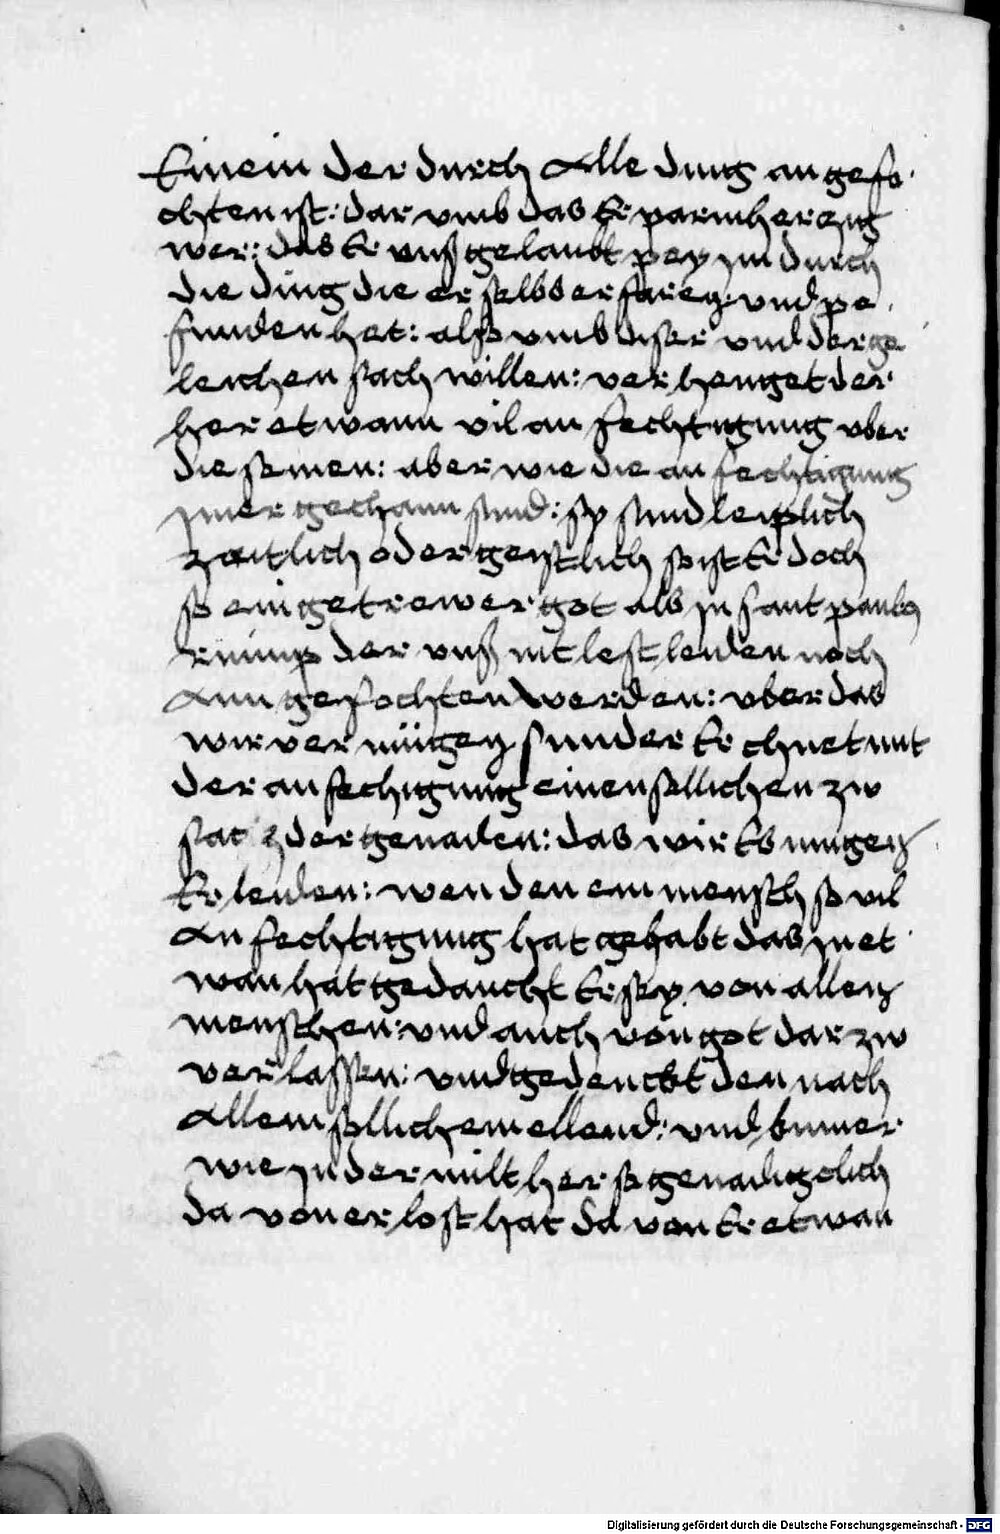 Einein der durch Alle ding an gefo
chten ist: dar vmb das Er parmherczig
wer: das Er vnß gelaubt pey jm durch
die ding die er selbs erfaren: vnd pe
funden hat: also vmb diser vnd der ge
leichen sach willen: ver henget der
her etwann vil an fechtigung vber
die seinen: aber wie die an fechtigung
jmer gethann sind: sy sind leiplich
zeitlich oder geistlich so ist Er doch
so ein getrewer got als jn sant paulus
rüimp der vnß nit lest leiden noch
Ann gefochten werden: vber das
wir ver mügen sunder Er chnet mit
der anfechigung einen sollichen zw
sacz der genaden: das wir Es mugen
Er leiden: wen den ein mensch so vil
An fechtigung hat gehabt das jn et
wan hat gedaucht Er sey von allen
menschen: vnd auch von got dar zw
ver lassen: vnd gedenckt den nach
Allem sollichem ellend: vnd kumer
wie jn der milt her so genadigclich
da von er lost hat da von Er etwan
Digitalisierung gefördert durch die Deutsche Forschungsgemeinschaft - DFG